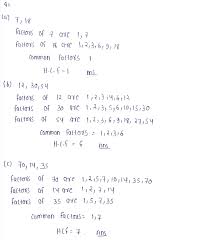 4.
(a) 7, 18
Factors of 7 are 1, 7
Factors of 18 are 1, 2, 3, 6, 9, 18
Common Factors 1
H.C.F = 1 Ans.
(b) 12, 30, 54
Factors of 12 are 1, 2, 3, 4, 6, 12
Factors of 30 are 1, 2, 3, 5, 6, 10, 15, 30
Factors of 54 are 1, 2, 3, 6, 9, 18, 27, 54
Common factors = 1, 2, 3, 6
H.C.F = 6 Ans
(c) 70, 14, 35
Factors of 70 are 1, 2, 5, 7, 10, 14, 35, 70
Factors of 14 are 1, 2, 7, 14
Factors of 35 are 1, 5, 7, 35
Common Factors = 1, 7
HCF = 7 Ans